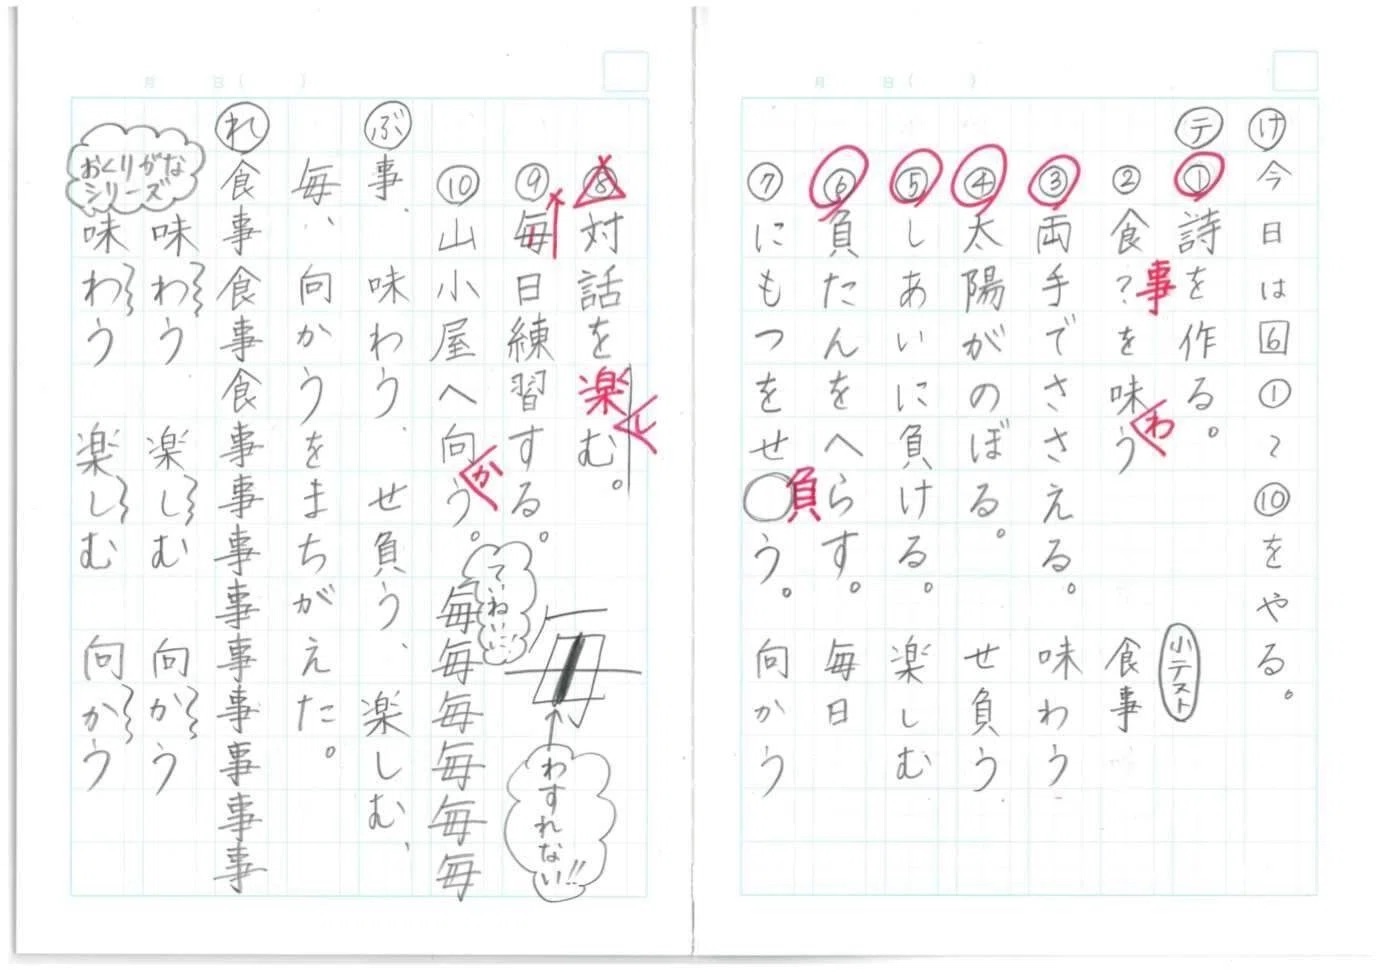 月 日( )
け 今日は6①~⑩をやる。
テ ①詩を作る。
②食?を味う
事
わ
小テスト
食事
③両手でささえる。
味わう
④太陽がのぼる。
せ負う
⑤しあいに負ける。
楽しむ
⑥負たんをへらす。
毎日
⑦にもつをせ○う。
負
向かう
月 日( )
⑧対話を楽む。
し
⑨毎日練習する。
⑩山小屋へ向う。
か
ていねいに
わすれない!!
毎毎毎毎毎毎
ぶ 事、味わう、せ負う、楽しむ、
毎、向かうをまちがえた。
れ 食事食事食事事事事事事事事事
おくりがなシリーズ
味わう 楽しむ 向かう
味わう 楽しむ 向かう